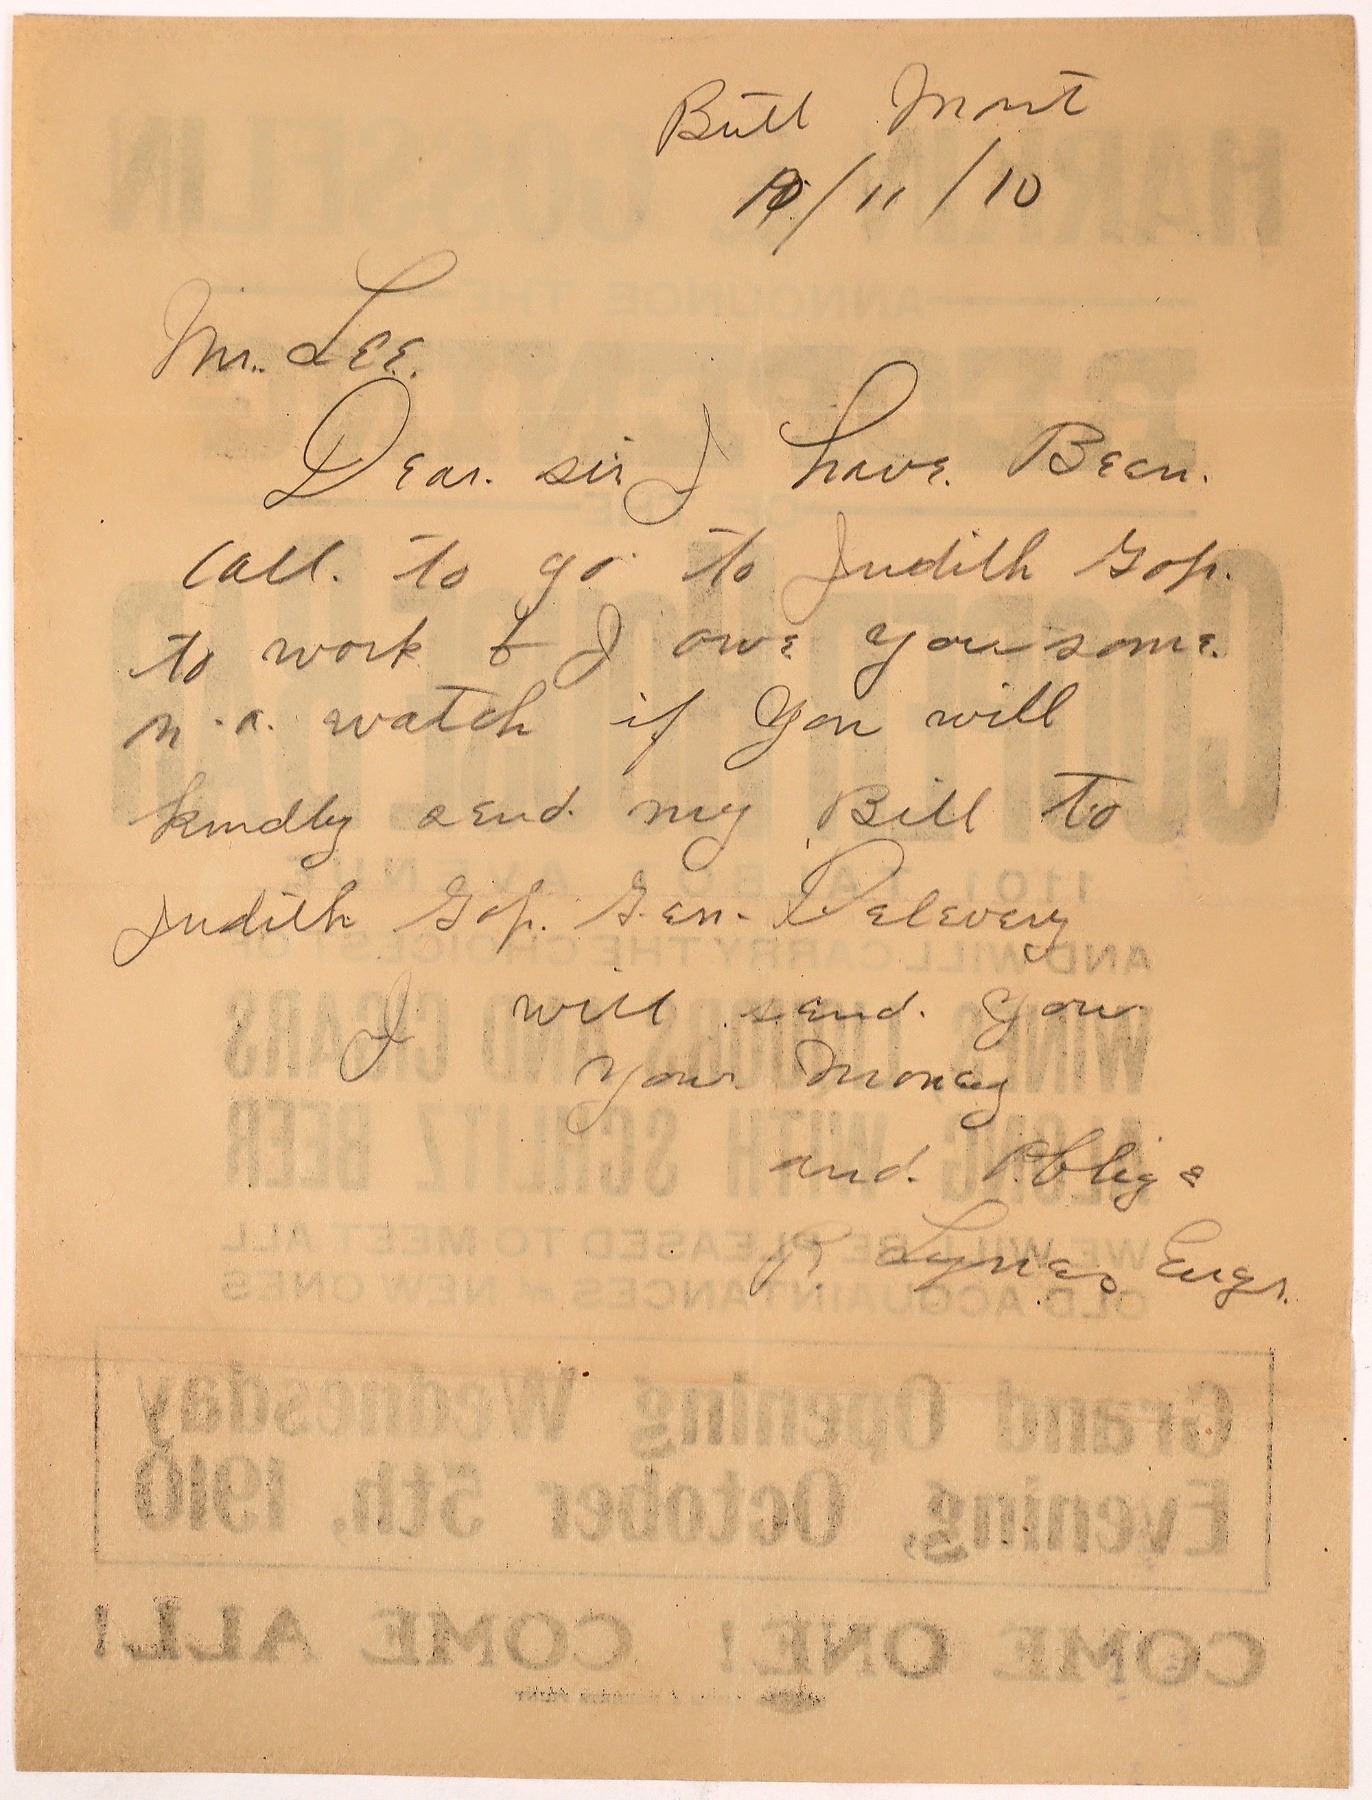 Butt Mont
10/11/10
Mr. LEE.
Dear. sir I have Been.
call. to go to Judith Gap.
to work & I owe you some.
n.a. watch if you will
kindly send my Bill to
Judith Gap. Gen- Delevery
I will send. you
your money
and. Oblige
R Lynes Engr.
HARKIN GOSSELIN
ANNOUNCE THE
OF THE
1101 TALBOT AVENUE
AND WILL CARRY THE CHOICEST OF
WINES, LIQUORS AND CIGARS
ALONG WITH SCHLITZ BEER
WE WILL BE PLEASED TO MEET ALL
OLD ACQUAINTANCES & NEW ONES
Grand Opening Wednesday
Evening, October 5th, 1910
COME ONE! COME ALL!